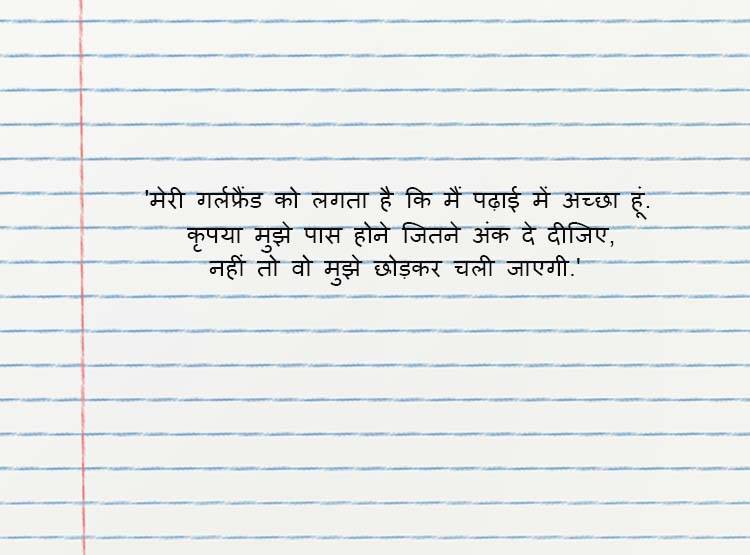 'मेरी गर्लफ्रैंड को लगता है कि मैं पढ़ाई में अच्छा हूं.
कृपया मुझे पास होने जितने अंक दे दीजिए,
नहीं तो वो मुझे छोड़कर चली जाएगी.'